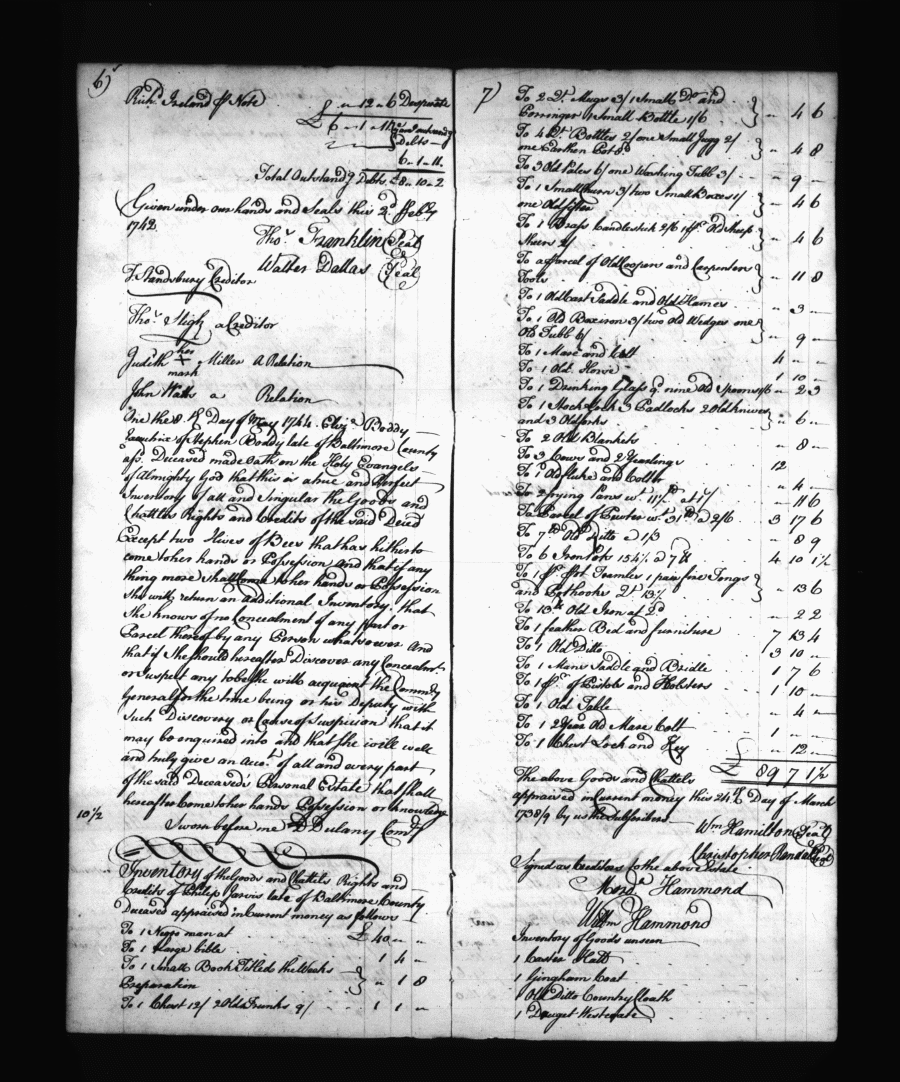 6)
Rich.d Ireland p Note £ " 12 " 6 Desperate
£ 6 " 1 " 11
Debts
6 " 1 " 11
Total Outstand.g Debts £ 8 " 10 " 2
Given under our hands and Seals this 2.d Feb.ry
1742
Tho.s Franklin (Seal)
Walter Dallas (Seal)
T. Standsbury Creditor
Tho.s Sligh a Creditor
her
Judith + Miller a Relation
mark
John Watts a Relation
One the 8th Day of May 1744. Eliz.a Boddy
Executrix of Stephen Boddy late of Baltimore County
afs.d Deceased made Oath on the Holy Evangels
of Almighty God that this is a true and Perfect
Inventory of all and Singular the Goods and
Chattles Rights and Credits of the said Deced
Except two Hives of Bees that has hitherto
come to her hands or Possession and that if any
thing more shall come to her hands or Possession
she will return an additional Inventory that
she knows of no Concealment of any part or
Parcel thereof by any Person whatsoever And
that if she should hereafter Discover any Concealm.t
or Suspect any to be she will acquaint the Commiss.y
General for the time being or his Deputy with
such Discovery or Cause of Suspicion that it
may be enquired into and that she will well
and truly give an Acco.t of all and every part
of the said Deceased's Personal Estate that shall
hereafter Come to her hands Possession or Knowledge
10 1/2
Sworn before me D Dulany Com.y G
Inventory of the Goods and Chattels Rights and
Credits of Philip Jarvis late of Baltimore County
Deceased appraised in Current money as follows
To 1 Negro man at £ 40 " "
To 1 Large bible 1 4 "
To 1 Small Book Titled the Weeks
Preparation } " 1 8
To 1 Chest 12/ 2 Old Trunks 9/ 1 1 "
7)
To 2 Q.t Mugs 3/ 1 Small D.o and
Porringer 1 Small Bottle 1/6 } " 4 6
To 4 Q.t Bottles 2/ one Small Jugg 2/
one Earthen Pot 8.d } " 4 8
To 3 Old Pales 6/ one Washing Tubb 3/ " 9 "
To 1 Small Churn 3/ two Small Boxes 1/
one Old Sifter } " 4 6
To 1 Brass Candlestick 2/6 1 p.r Old Sheep
Sheers 2/ } " 4 6
To a Parcel of Old Coopers and Carpenters
Tools } " 11 8
To 1 Old Cart Saddle and Old Hames " 3 "
To 1 Old Box iron 3/ two Old Wedges one
Old Tubb 6/ } " 9 "
To 1 Mare and Colt 4 " "
To 1 Old Horse 1 10 "
To 1 Drinking Glass 9.d nine Old Spoons 1/6 " 2 3
To 1 Stock Lock 3 Padlocks 2 Old knives
and 3 Old forks } " 6 "
To 2 Old Blankets " 8 "
To 3 Cows and 2 Yearlings 12
To 1 Old fluke and Colter " 4 "
To 2 frying Pans w.t 11 1/2 lb at 1/ " 11 6
To Parcel of Pewter w.t 31 lb @ 2/6 3 17 6
To 7 lb Old Ditto @ 1/3 " 8 9
To 6 Iron Pots 154 1/2 @ 7.d 4 10 1 1/2
To 1 p.r Pot Tramles 1 pair fire Tongs
and Pothooks } " 13 6
To 13 lb Old Iron at 2.d " 2 2
To 1 feather Bed and furniture 7 13 4
To 1 Old Ditto 3 10 "
To 1 Mans Saddle and Bridle 1 7 6
To 1 p.r of Pistols and Holsters 1 10 "
To 1 Old Table " 4 "
To 1 2 Year Old Mare Colt 1 " "
To 1 Chest Lock and Key " 12 "
£ 89 7 1 1/2
The above Goods and Chattels
appraised in Current money this 24th Day of March
1738/9 by us the Subscribers
Wm Hamilton (Seal)
Christopher Randall (Seal)
Signed as Creditors to the above Estate
Hammond
Willm Hammond
Inventory of Goods unseen
1 Castor Hatt
1 Gingham Coat
1 Old Ditto Country Cloath
1 Westcoate